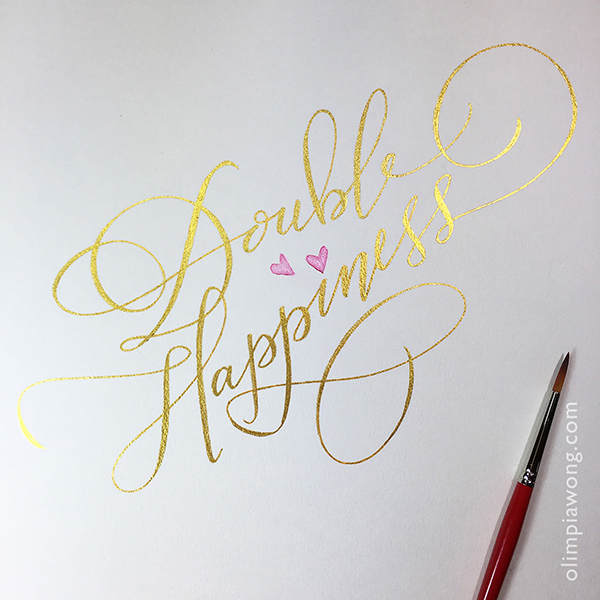 Double
Happiness
olimpiawong.com